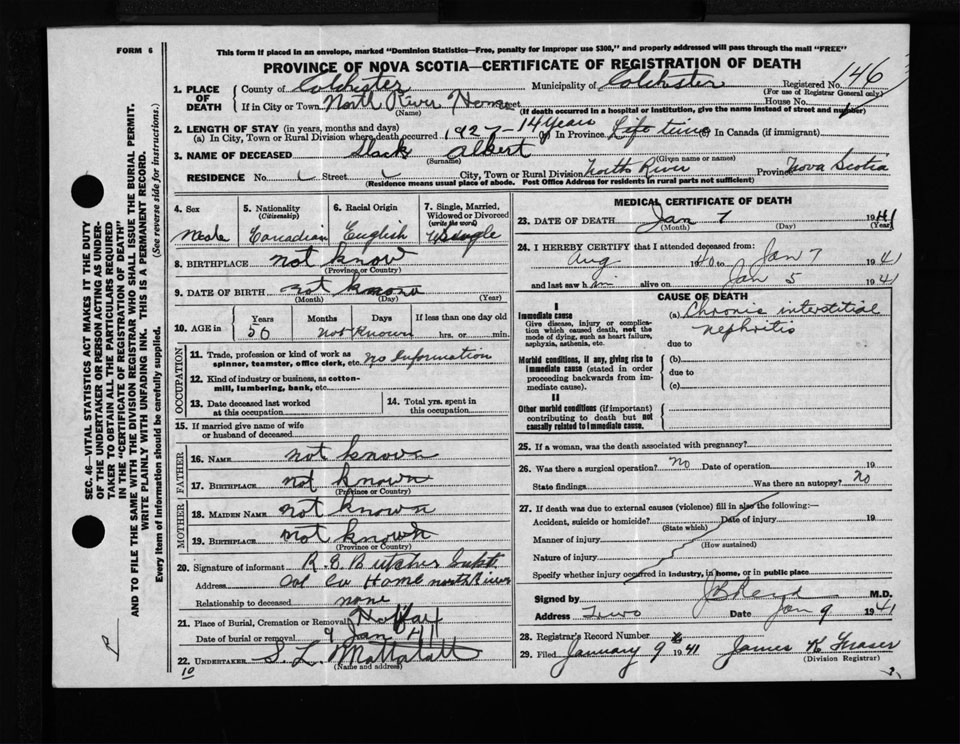 FORM 6
This form if placed in an envelope, marked "Dominion Statistics—Free, penalty for improper use $300," and properly addressed will pass through the mail "FREE"
PROVINCE OF NOVA SCOTIA—CERTIFICATE OF REGISTRATION OF DEATH
1. PLACE OF DEATH
County of Colchester Municipality of Colchester Registered No. 146
(For use of Registrar General only)
If in City or Town North River Home Street House No.
(Name) (If death occurred in a hospital or institution, give the name instead of street and number)
2. LENGTH OF STAY (in years, months and days)
(a) In City, Town or Rural Division where death occurred 1927-14 years (b) In Province Life time In Canada (if immigrant)
3. NAME OF DECEASED Slack Albert
(Surname) (Given name or names)
RESIDENCE No. Street City, Town or Rural Division North River Province Nova Scotia
(Residence means usual place of abode. Post Office Address for residents in rural parts not sufficient)
4. Sex
Male
5. Nationality (Citizenship)
Canadian
6. Racial Origin
English
7. Single, Married, Widowed or Divorced (write the word)
Single
8. BIRTHPLACE not know
(Province or Country)
9. DATE OF BIRTH not known
(Month) (Day) (Year)
10. AGE in
Years Months Days If less than one day old
50 Not Known hrs. or min.
OCCUPATION
11. Trade, profession or kind of work as spinner, teamster, office clerk, etc. no Information
12. Kind of industry or business, as cotton-mill, lumbering, bank, etc.
13. Date deceased last worked at this occupation
14. Total yrs. spent in this occupation
15. If married give name of wife or husband of deceased
FATHER
16. NAME not known
17. BIRTHPLACE not known
(Province or Country)
MOTHER
18. MAIDEN NAME not known
19. BIRTHPLACE not known
(Province or Country)
20. Signature of informant R. G. Butcher Supt.
Address Col Co Home north River
Relationship to deceased none
21. Place of Burial, Cremation or Removal Halifax
Date of burial or removal 9 Jan 41
22. UNDERTAKER S. L. Mattatall
(Name and address)
10
MEDICAL CERTIFICATE OF DEATH
23. DATE OF DEATH Jan 7 1941
(Month) (Day) (Year)
24. I HEREBY CERTIFY that I attended deceased from:
Aug 1940 to Jan 7 1941
and last saw him alive on Jan 5 1941
CAUSE OF DEATH
I
Immediate cause
Give disease, injury or complication which caused death, not the mode of dying, such as heart failure, asphyxia, asthenia, etc.
(a) Chronic interstitial
nephritis
due to
Morbid conditions, if any, giving rise to immediate cause (stated in order proceeding backwards from immediate cause).
(b)
due to
(c)
II
Other morbid conditions (if important) contributing to death but not causally related to immediate cause.
25. If a woman, was the death associated with pregnancy?
26. Was there a surgical operation? no Date of operation 19
State findings Was there an autopsy? no
27. If death was due to external causes (violence) fill in also the following:—
Accident, suicide or homicide? Date of injury 19
(State which)
Manner of injury
(How sustained)
Nature of injury
Specify whether injury occurred in industry, in home, or in public place
Signed by J B Reid M.D.
Address Truro Date Jan 9 1941
28. Registrar's Record Number
29. Filed January 9 1941 James K Fraser
(Division Registrar)
SEC. 46—VITAL STATISTICS ACT MAKES IT THE DUTY OF THE UNDERTAKER OR PERSON ACTING AS UNDERTAKER TO OBTAIN ALL THE PARTICULARS REQUIRED IN THE "CERTIFICATE OF REGISTRATION OF DEATH" AND TO FILE THE SAME WITH THE DIVISION REGISTRAR WHO SHALL ISSUE THE BURIAL PERMIT.
WRITE PLAINLY WITH UNFADING INK. THIS IS A PERMANENT RECORD.
Every item of information should be carefully supplied. (See reverse side for instructions.)